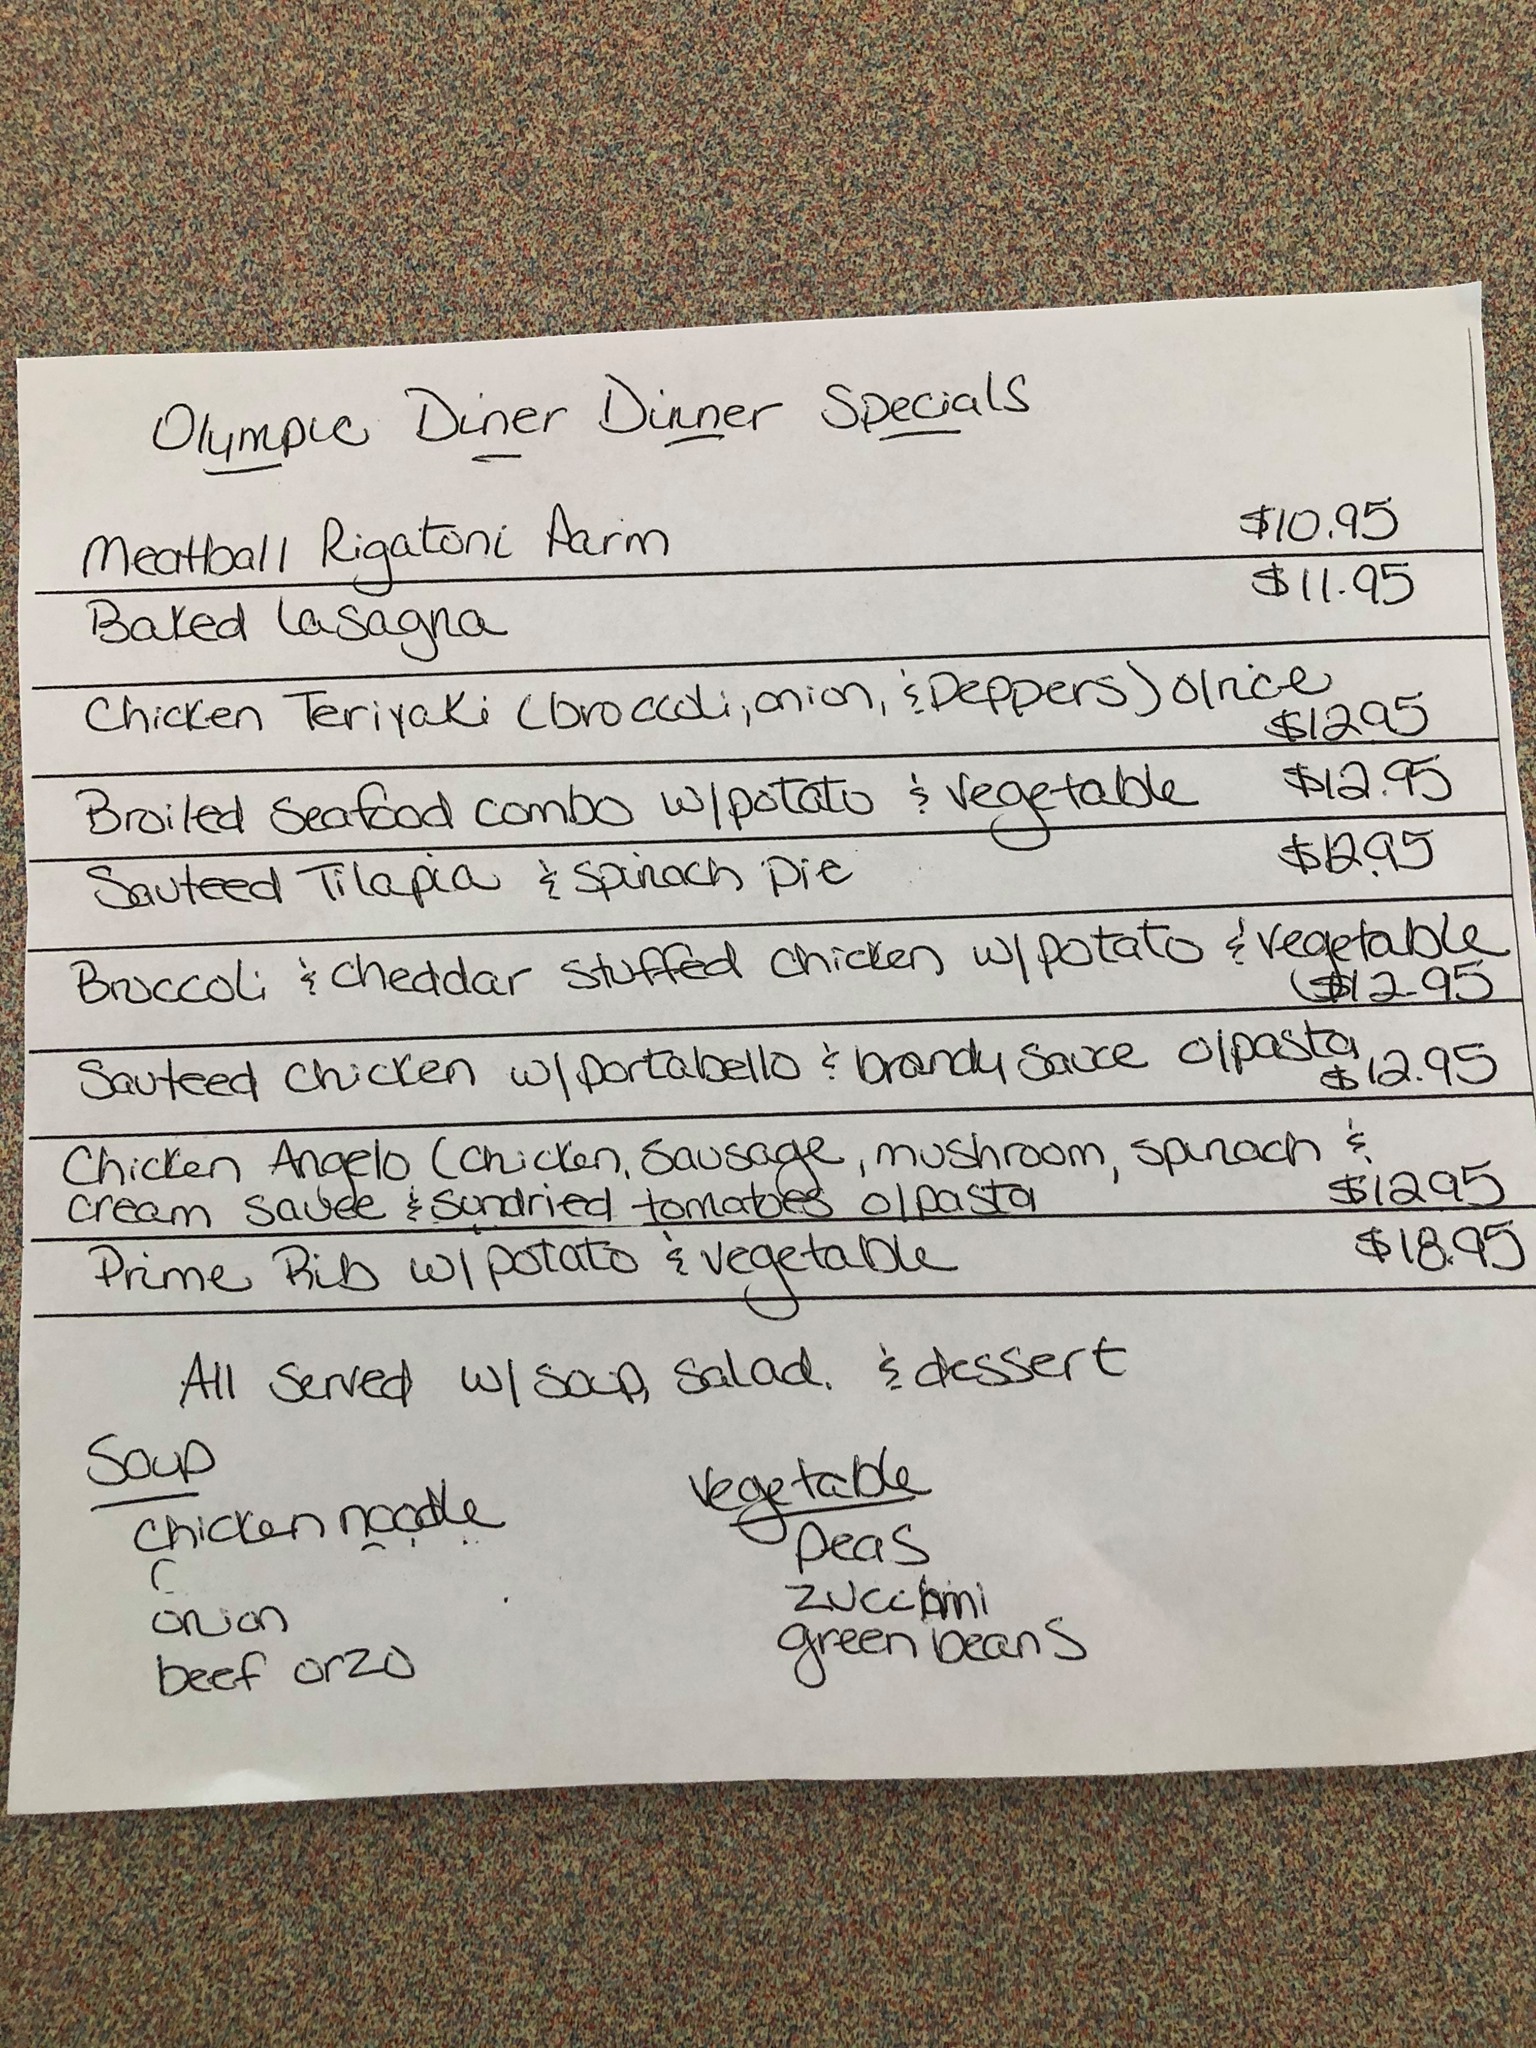 Olympic Diner Dinner Specials
Meatball Rigatoni Parm $10.95
Baked Lasagna $11.95
Chicken Teriyaki (broccoli, onion, & peppers) o/rice
$12.95
Broiled Seafood combo w/potato & vegetable $12.95
Sauteed Tilapia & spinach pie $12.95
Broccoli & cheddar stuffed chicken w/potato & vegetable
$12.95
Sauteed chicken w/portabello & brandy sauce o/pasta
$12.95
Chicken Angelo (chicken, sausage, mushroom, spinach &
cream sauce & sundried tomatoes o/pasta $12.95
Prime Rib w/potato & vegetable $18.95
All served w/soup, salad. & dessert
Soup
chicken noodle
onion
beef orzo
vegetable
peas
zucchini
green beans